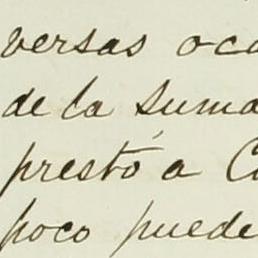 versas oca
de la suma
prestó a C
poco puede